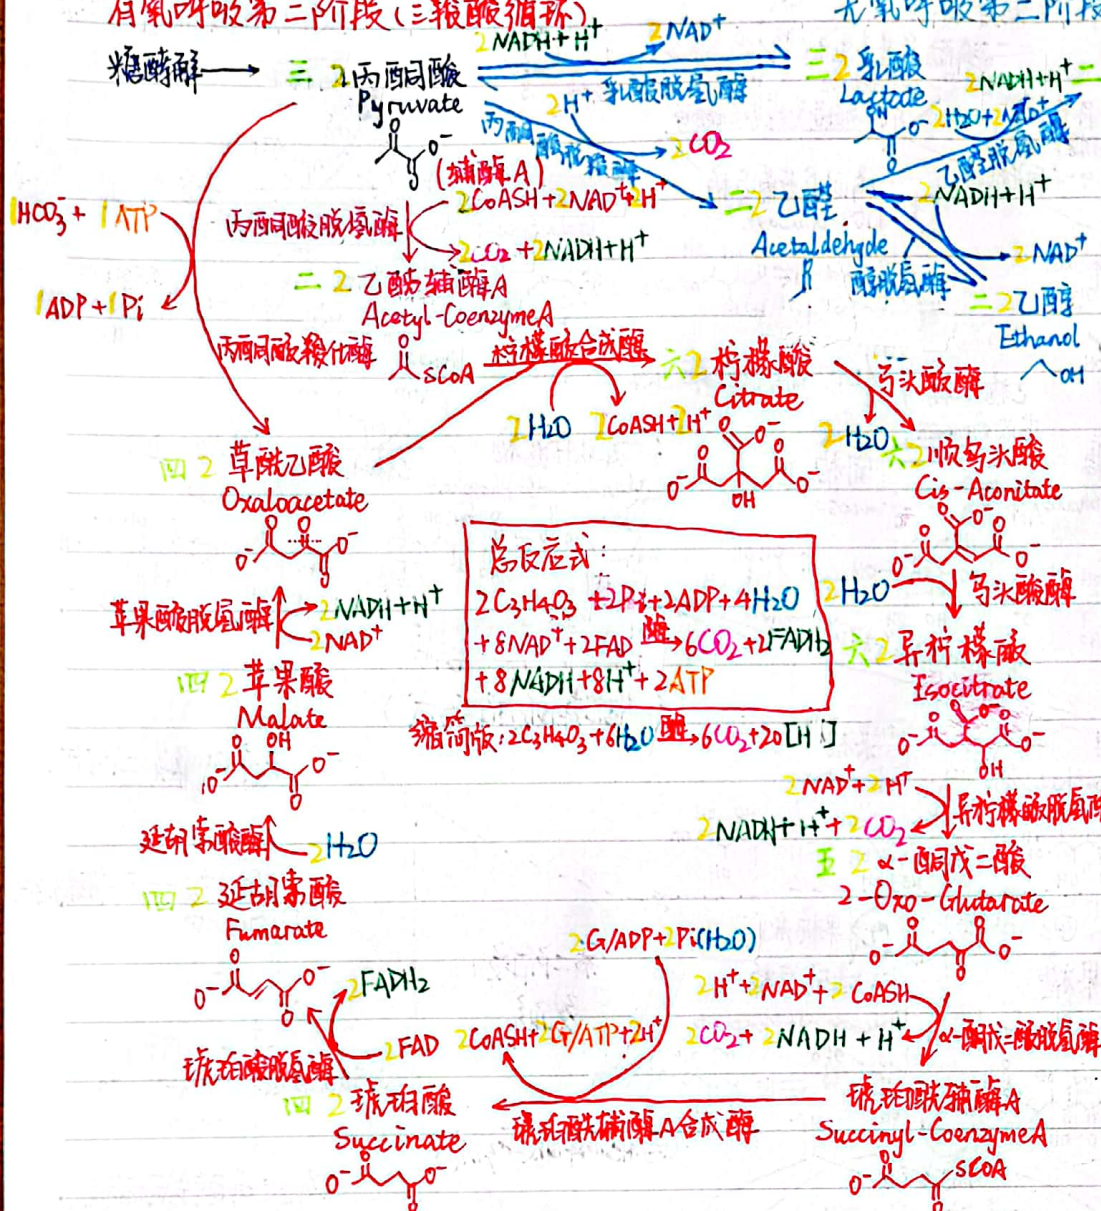 有氧呼吸第二阶段(三羧酸循环)
无氧呼吸第二阶段
糖酵解
三 2丙酮酸
Pyruvate
2NADH+H⁺
2NAD⁺
乳酸脱氢酶
三 2乳酸
Lactate
2H⁺
丙酮酸脱羧酶
2CO₂
2NADH+H⁺
二
2H₂O+2NAD⁺
乙醛脱氢酶
二 2乙醛
Acetaldehyde
2NADH+H⁺
2NAD⁺
醇脱氢酶
二 2乙醇
Ethanol
OH
(辅酶A)
2CoASH+2NAD⁺+2H⁺
丙酮酸脱氢酶
2CO₂+2NADH+H⁺
二 2乙酰辅酶A
Acetyl-CoenzymeA
SCoA
1HCO₃⁻+1ATP
1ADP+1Pi
丙酮酸羧化酶
柠檬酸合成酶
2H₂O
2CoASH+2H⁺
六 2柠檬酸
Citrate
乌头酸酶
2H₂O
六 2顺乌头酸
Cis-Aconitate
2H₂O
乌头酸酶
六 2异柠檬酸
Isocitrate
2NAD⁺+2H⁺
异柠檬酸脱氢酶
2NADH+H⁺+2CO₂
五 2α-酮戊二酸
2-Oxo-Glutarate
2H⁺+2NAD⁺+2CoASH
2CO₂+2NADH+H⁺
α-酮戊二酸脱氢酶
琥珀酰辅酶A
Succinyl-CoenzymeA
SCOA
2G/ADP+2Pi(H₂O)
2CoASH+2G/ATP+2H⁺
琥珀酰辅酶A合成酶
四 2琥珀酸
Succinate
琥珀酸脱氢酶
2FAD
2FADH₂
四 2延胡索酸
Fumarate
延胡索酸酶
2H₂O
四 2苹果酸
Malate
苹果酸脱氢酶
2NADH+H⁺
2NAD⁺
四 2草酰乙酸
Oxaloacetate
总反应式:
2C₃H₄O₃+2Pi+2ADP+4H₂O
+8NAD⁺+2FAD 酶→6CO₂+2FADH₂
+8NADH+8H⁺+2ATP
缩简版:2C₃H₄O₃+6H₂O 酶→6CO₂+20[H]